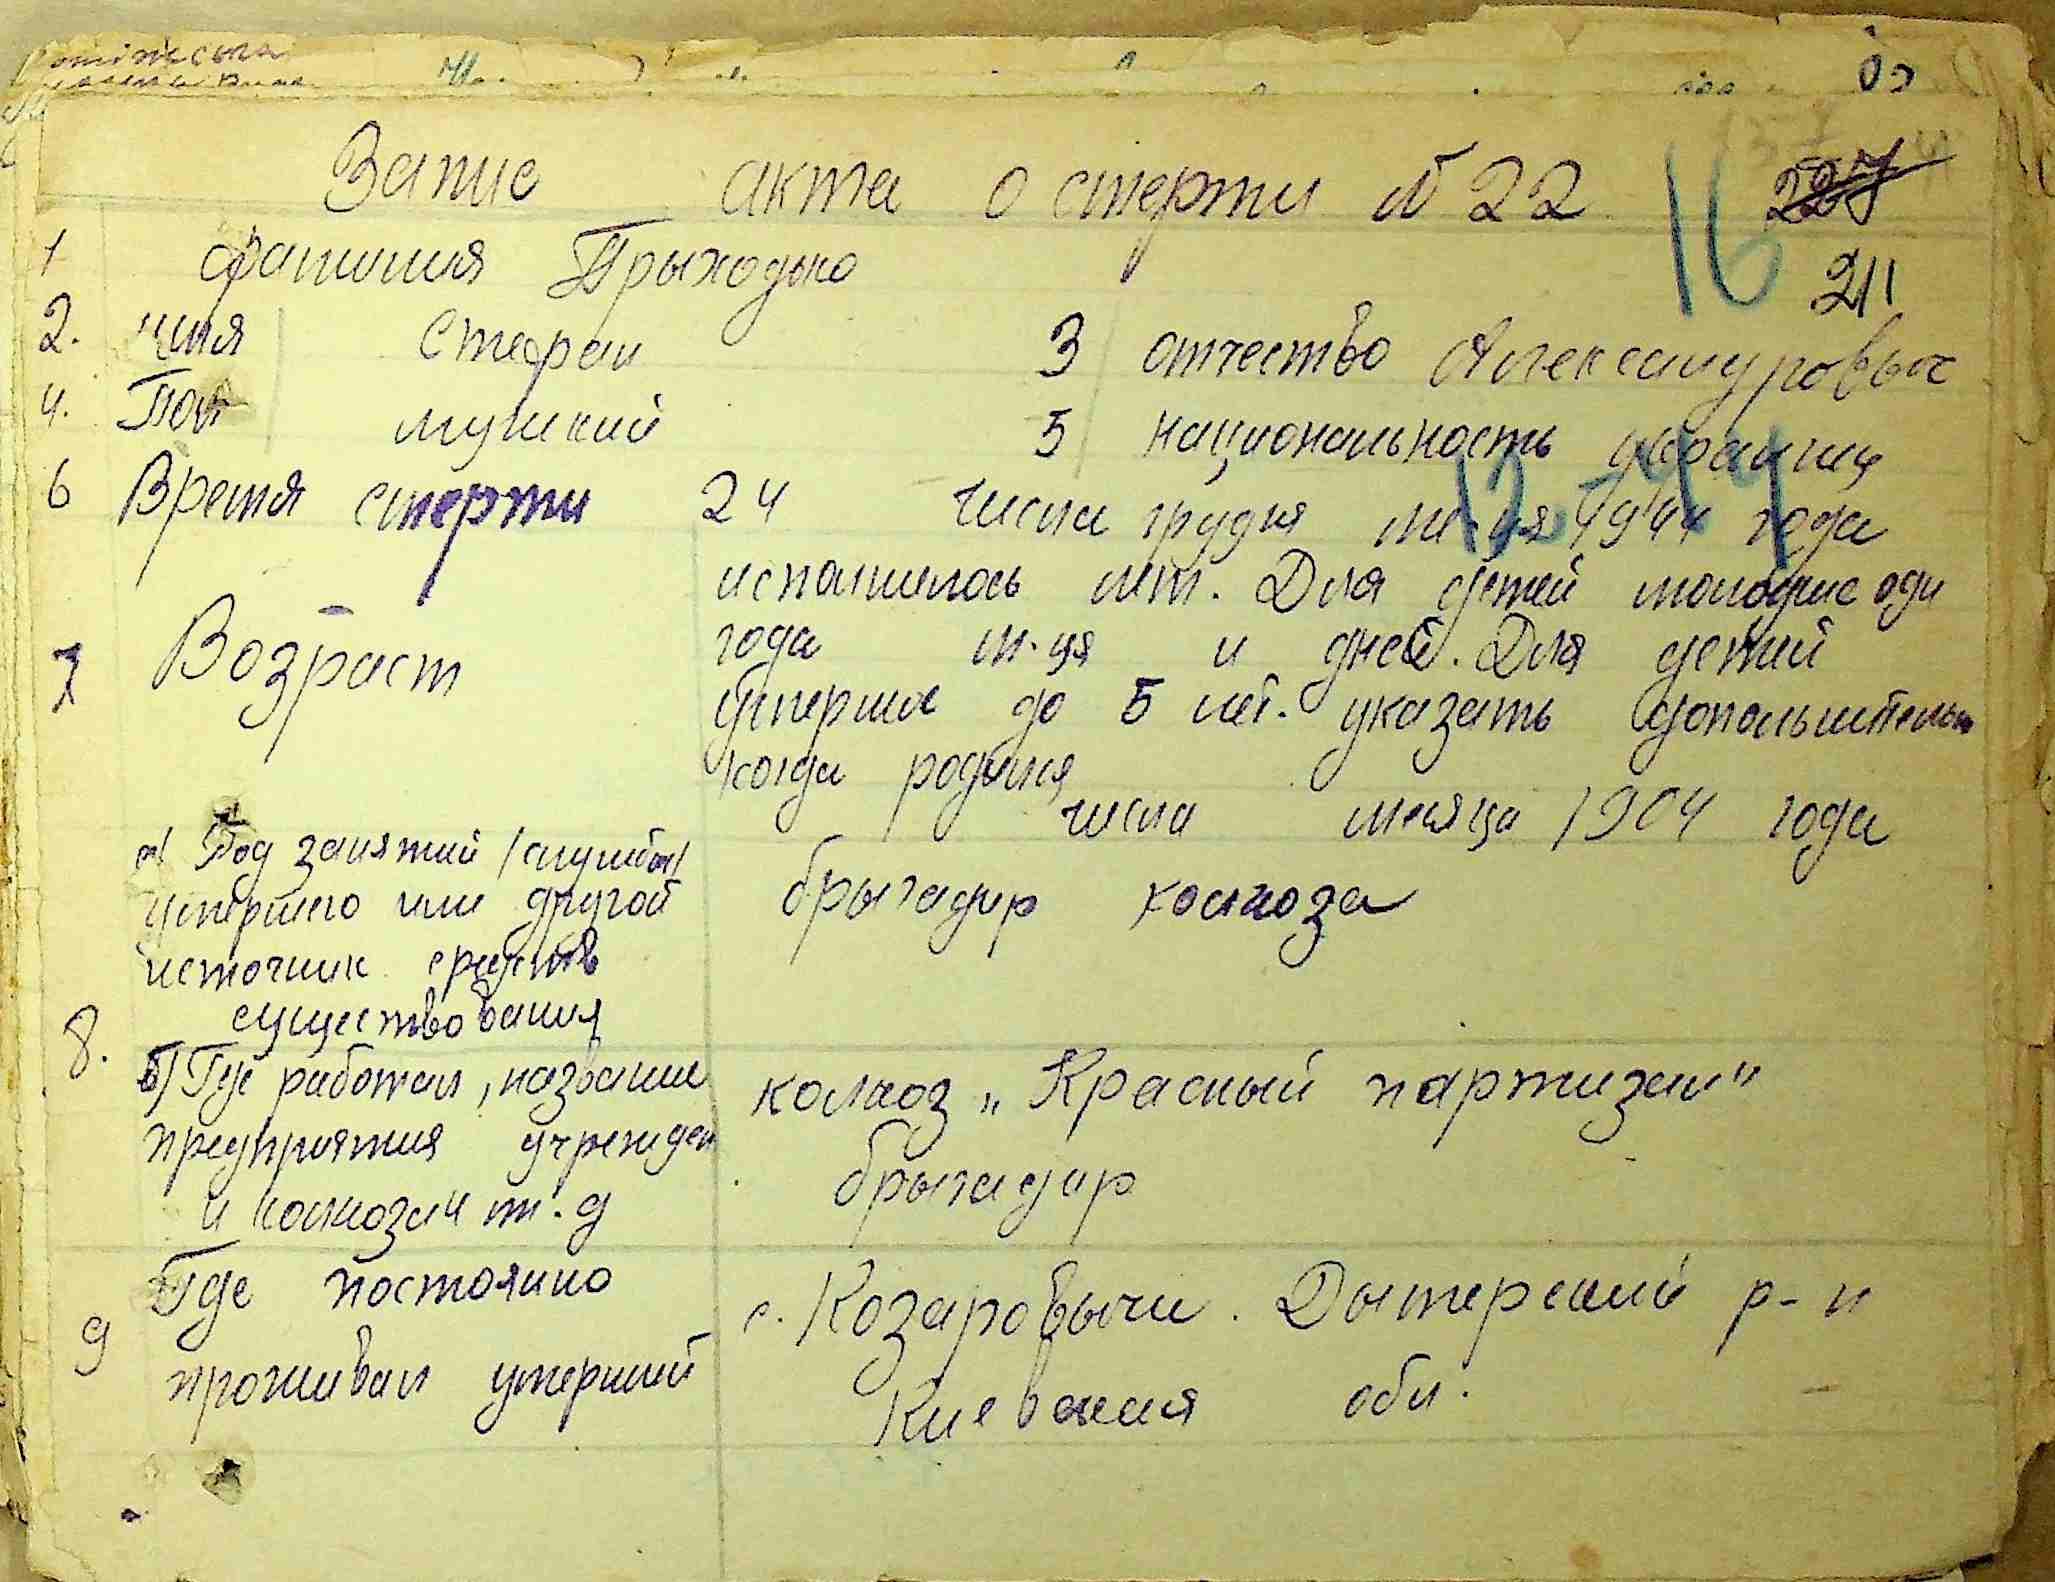 Запис акта о смерти № 22 227
16 211
1 фамилия Прыходько
2. имя Стефан 3 отчество Александровыч
4. Пол мужский 5 национальность украинец
12 44
6 Время смерти 24 числа грудня м-ця 1944 года
исполнилось лет. Для детей молодше одн
7 Возраст года м-ця и дней. Для детей
умерших до 5 лет. указать дополнительно
когда родился
числа месяца 1904 года
а/ Род занятий /службы/
умершего или другой брыгадир колхоза
источник средств
существования
8. б) Где работал, название колхоз „Красный партизан"
предприятия учрежден
и колхоза и т.д брыгадир
9 Где постоянно с. Козаровычи. Дымерский р-н
проживал умерший Киевская обл.